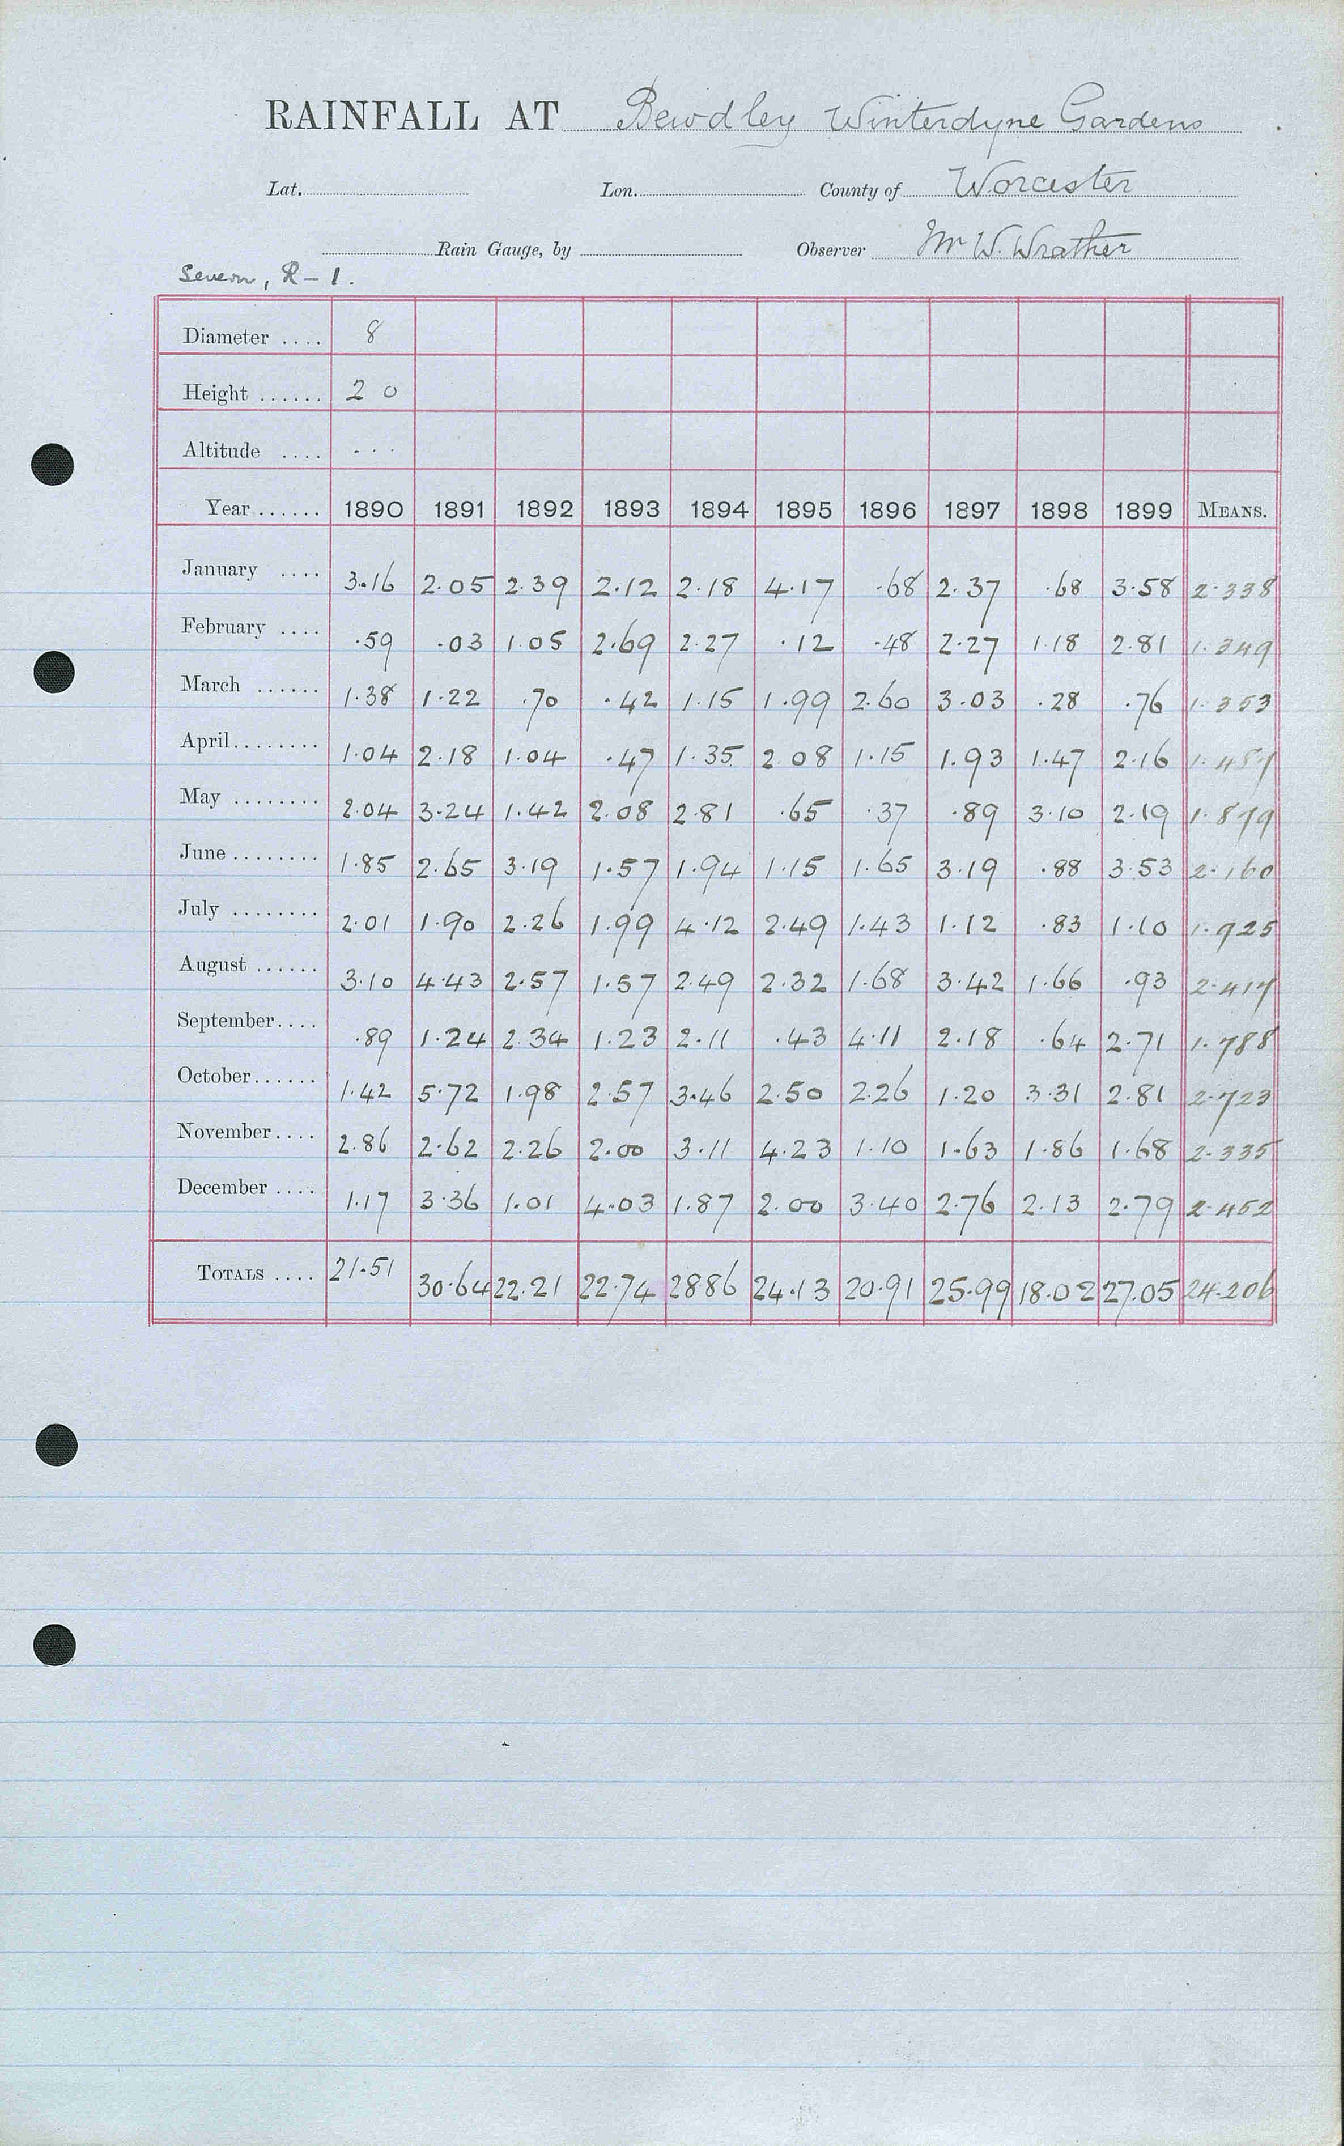 RAINFALL AT Bewdley Winterdyne Gardens
Lat. Lon. County of Worcester
Rain Gauge, by Observer Mr W. Wrather
Severn, R - 1.
Diameter .... 8
Height ...... 2 0
Altitude .... ...
Year ...... 1890 1891 1892 1893 1894 1895 1896 1897 1898 1899 MEANS.
January .... 3.16 2.05 2.39 2.12 2.18 4.17 .68 2.37 .68 3.58 2.338
February .... .59 .03 1.05 2.69 2.27 .12 .48 2.27 1.18 2.81 1.349
March ...... 1.38 1.22 .70 .42 1.15 1.99 2.60 3.03 .28 .76 1.353
April ........ 1.04 2.18 1.04 .47 1.35 2.08 1.15 1.93 1.47 2.16 1.487
May ........ 2.04 3.24 1.42 2.08 2.81 .65 .37 .89 3.10 2.19 1.879
June ........ 1.85 2.65 3.19 1.57 1.94 1.15 1.65 3.19 .88 3.53 2.160
July ........ 2.01 1.90 2.26 1.99 4.12 2.49 1.43 1.12 .83 1.10 1.925
August ...... 3.10 4.43 2.57 1.57 2.49 2.32 1.68 3.42 1.66 .93 2.417
September .... .89 1.24 2.34 1.23 2.11 .43 4.11 2.18 .64 2.71 1.788
October ...... 1.42 5.72 1.98 2.57 3.46 2.50 2.26 1.20 3.31 2.81 2.723
November .... 2.86 2.62 2.26 2.00 3.11 4.23 1.10 1.63 1.86 1.68 2.335
December .... 1.17 3.36 1.01 4.03 1.87 2.00 3.40 2.76 2.13 2.79 2.452
TOTALS .... 21.51 30.64 22.21 22.74 28 86 24.13 20.91 25.99 18.02 27.05 24.206